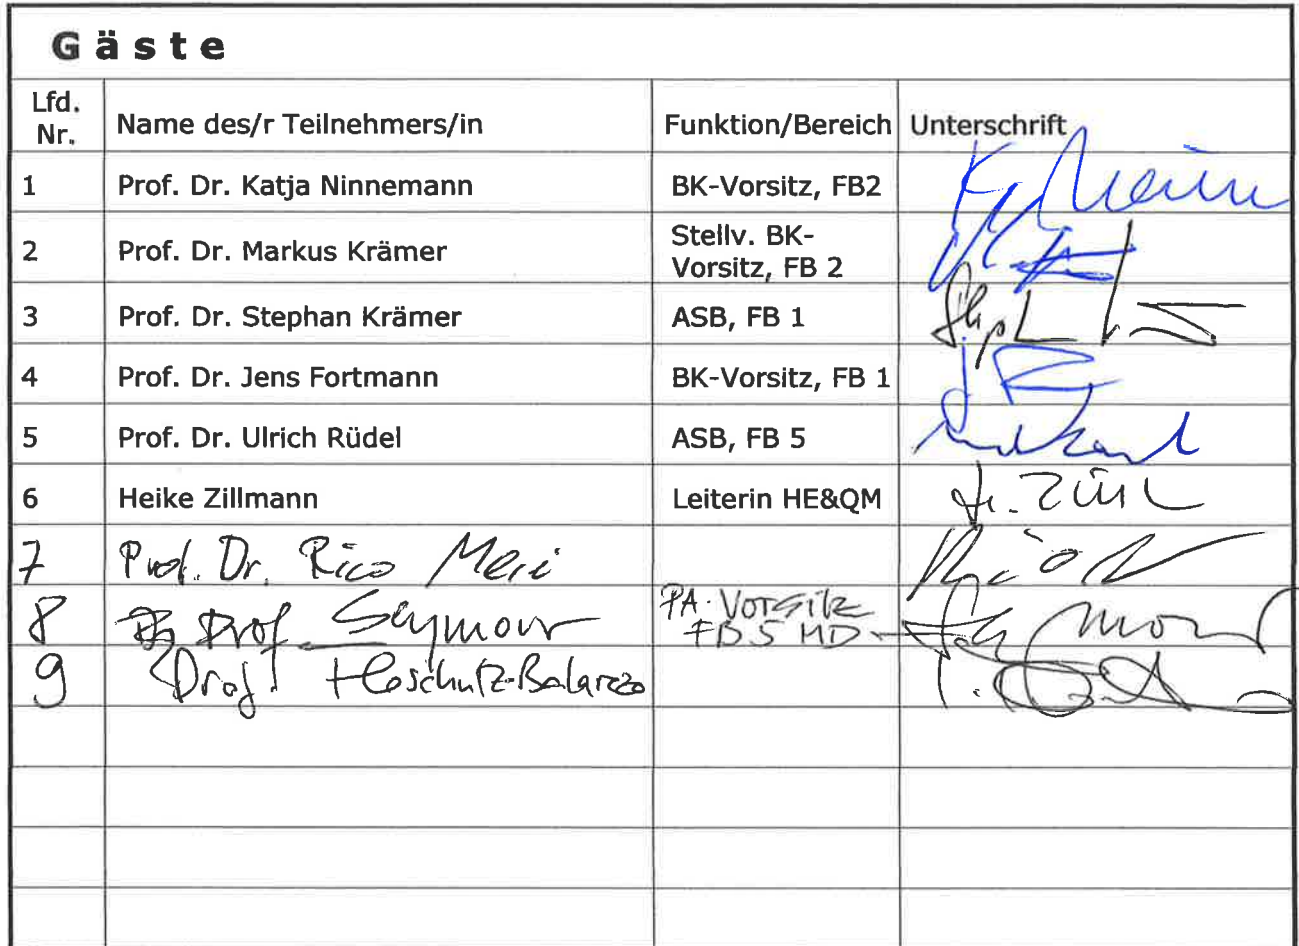 Gäste
Lfd. Nr. Name des/r Teilnehmers/in Funktion/Bereich Unterschrift
1 Prof. Dr. Katja Ninnemann BK-Vorsitz, FB2
2 Prof. Dr. Markus Krämer Stellv. BK-
Vorsitz, FB 2
3 Prof. Dr. Stephan Krämer ASB, FB 1
4 Prof. Dr. Jens Fortmann BK-Vorsitz, FB 1
5 Prof. Dr. Ulrich Rüdel ASB, FB 5
6 Heike Zillmann Leiterin HE&QM
7 Prof. Dr. Rico
8 Prof Seymour PA-Vorsitz
FB5 MD Seymour
9 Prof.